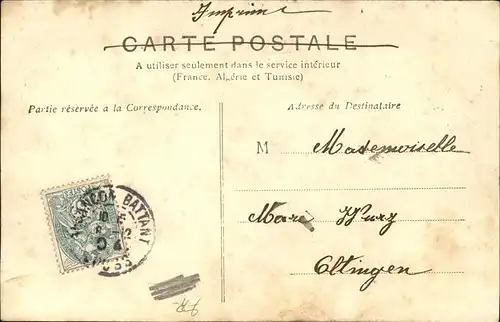 Imprimé
CARTE POSTALE
A utiliser seulement dans le service intérieur
(France, Algérie et Tunisie)
Partie réservée a la Correspondance.
Adresse du Destinataire
M Mademoiselle
Marie Wurz
Oltingen
BATTANT